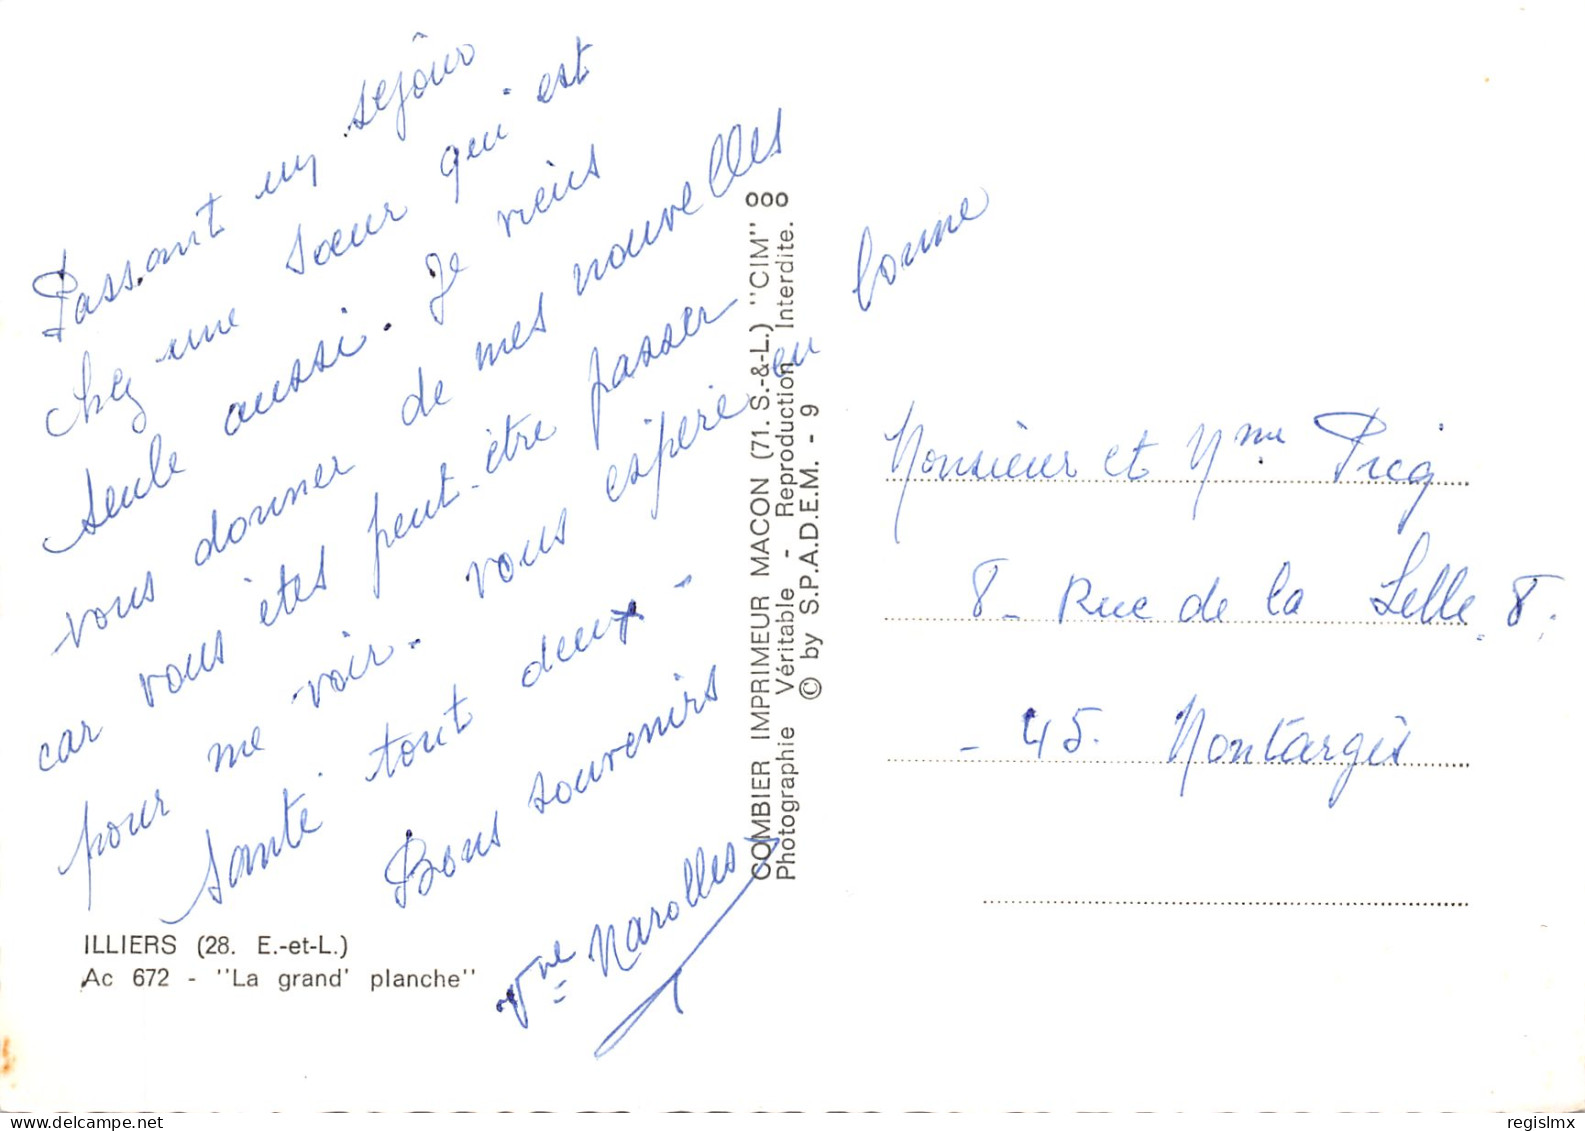 Passant un séjour
chez une sœur qui est
seule aussi. Je viens
vous donner de mes nouvelles
car vous êtes peut-être passer
pour me voir. vous espère en bonne
santé tout deux -
Bons souvenirs
Vve Marolles
ILLIERS (28. E.-et-L.)
Ac 672 - "La grand' planche"
COMBIER IMPRIMEUR MACON (71. S.-&-L.) "CIM"
Photographie Véritable - Reproduction Interdite.
© by S.P.A.D.E.M. - 9
Monsieur et Mme
8 - Rue de la Selle. 8.
- 45. Montargis
regislmx